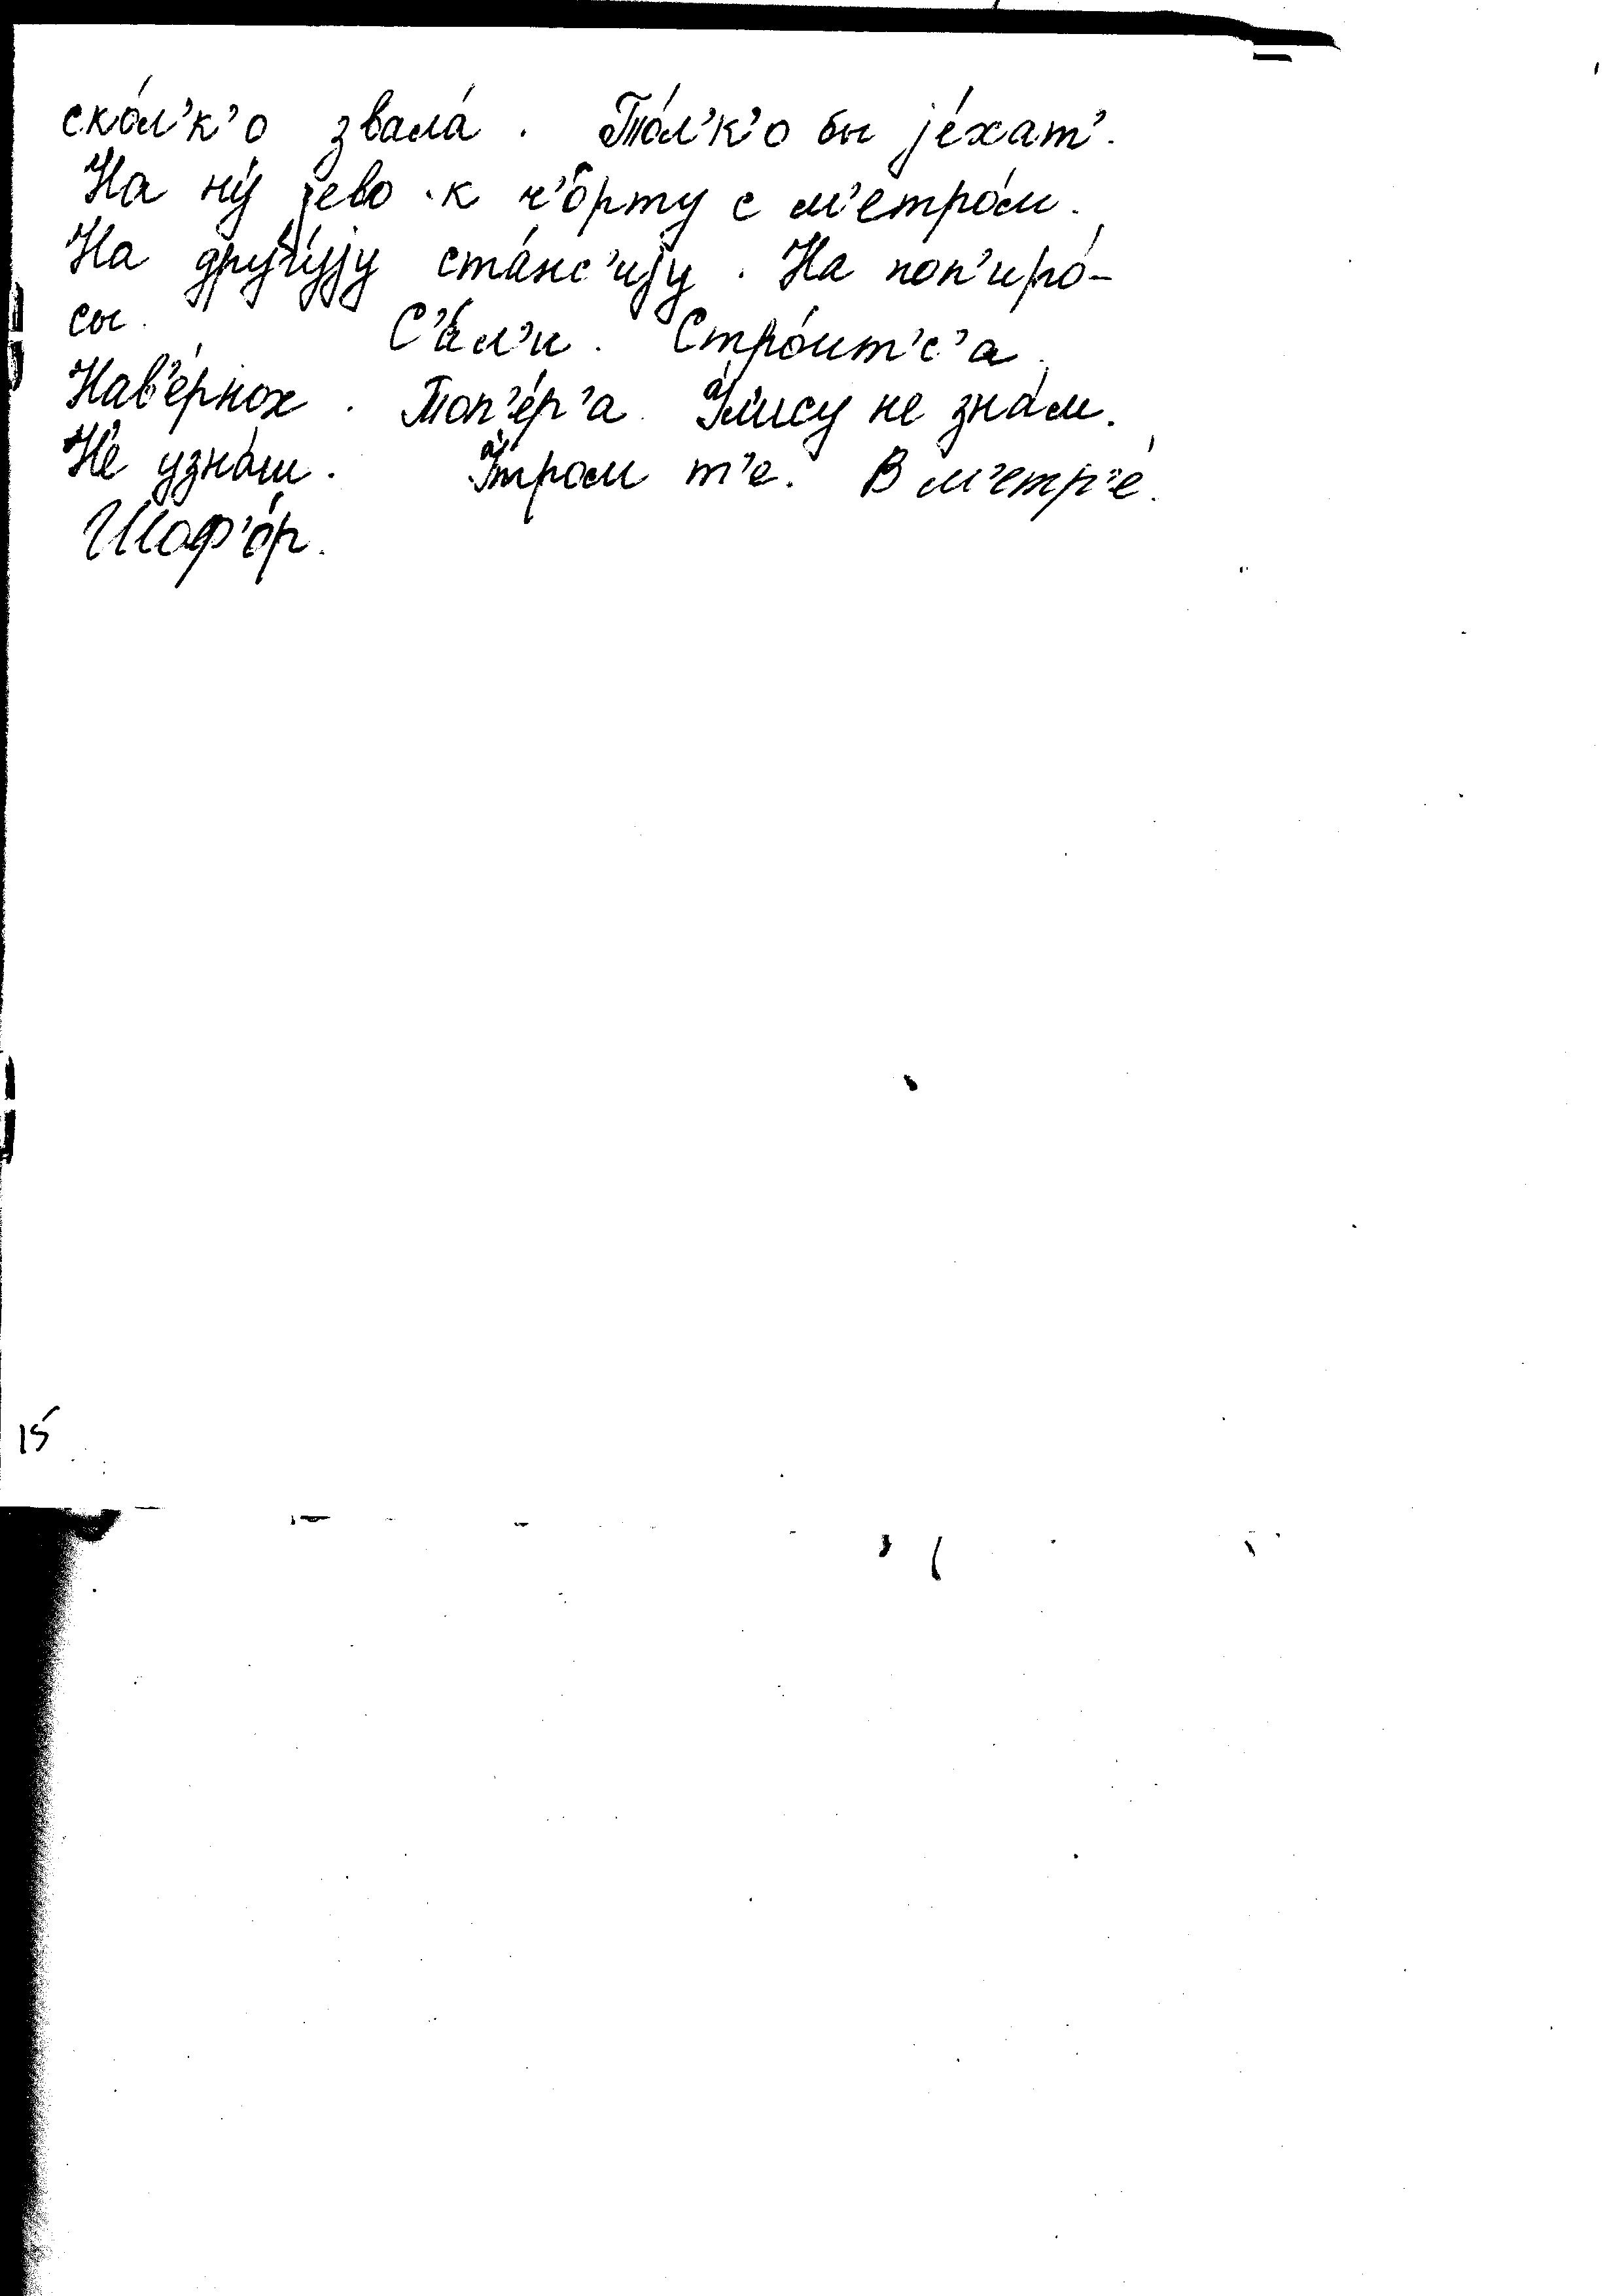 ско́л’к’о звала́. То́л’к’о бы је́хат’.
На ну́ јево к ч’о́рту с м’етро́м.
На другу́ју ста́нс’ију. На поп’иро́-
сы. С’а́л’и. Стро́ит’с’а.
Нав’е́рнох. Топ’е́р’а. не зна́м.
Не узна́ш. У́тром т’е. В м’етр’е́.
Шоф’о́р.
15